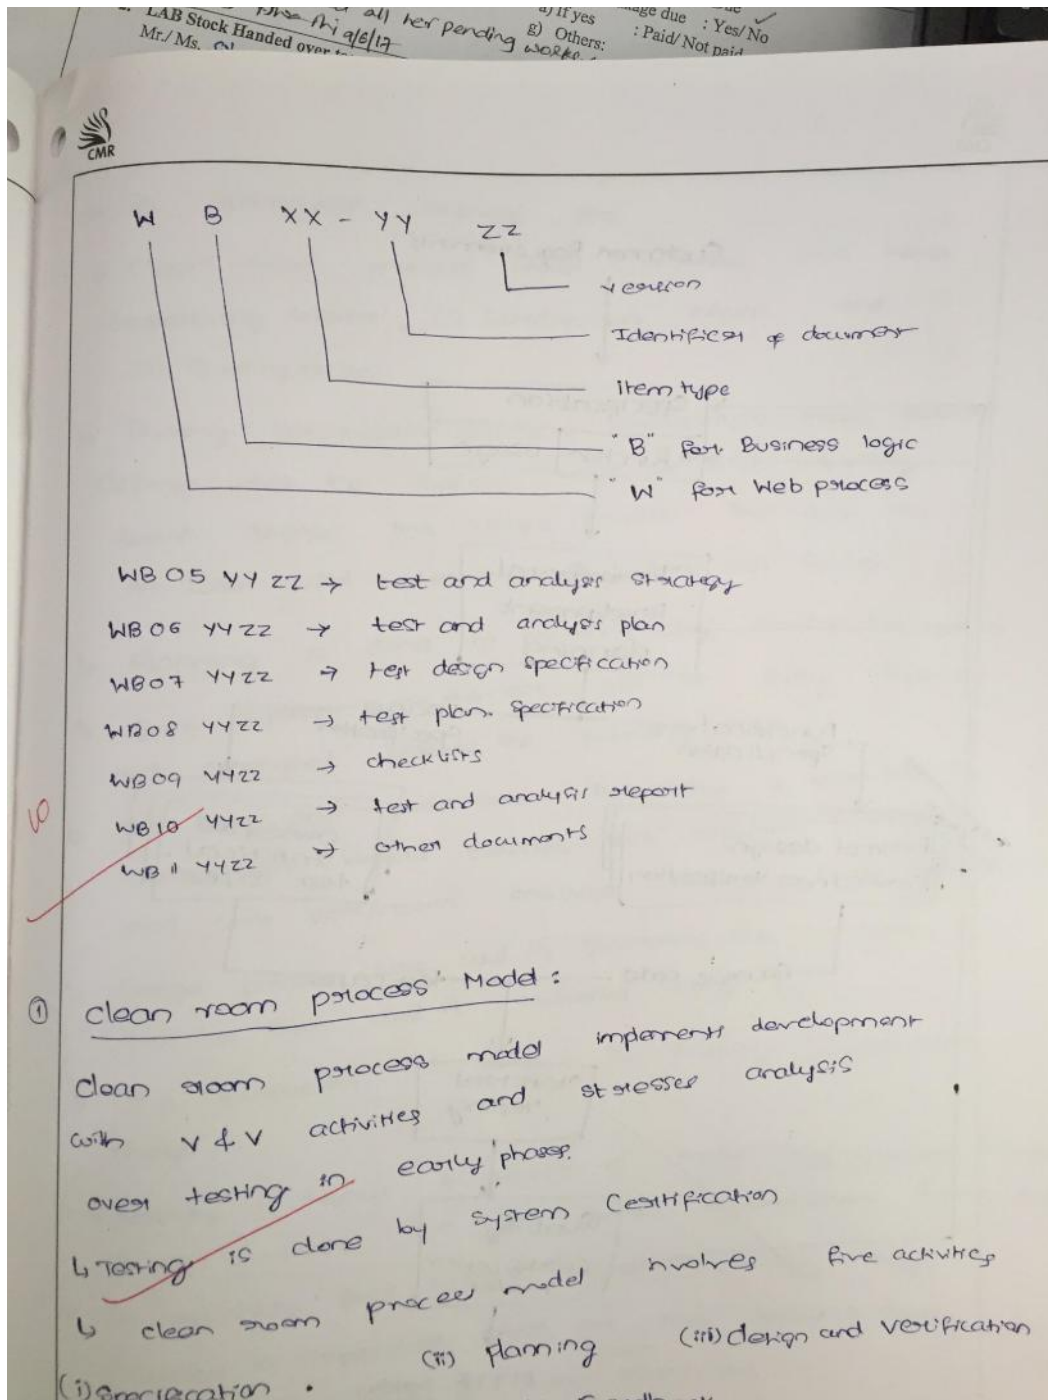 a) If yes
age due : Yes/No
all her pending
g) Others:
: Paid/Not paid
LAB Stock Handed over
9/6/17
works
Mr./Ms.
CMR
W B XX - YY ZZ
version
Identifier of document
item type
"B" for Business logic
"W" for Web process
WB 05 YY ZZ → test and analysis strategy
WB 06 YYZZ → test and analysis plan
WB07 YYZZ → test design specification
WB08 YYZZ → test plan. specification
WB09 YYZZ → checklists
10
WB10 YYZZ → test and analysis report
WB 11 YYZZ → other documents
① Clean room process Model :
Clean room process model implements development
with V & V activities and stresses analysis
over testing in early phases.
↳ Testing is done by system Certification
↳ clean room process model involves five activities
(i) specification . (ii) planning (iii) design and verification